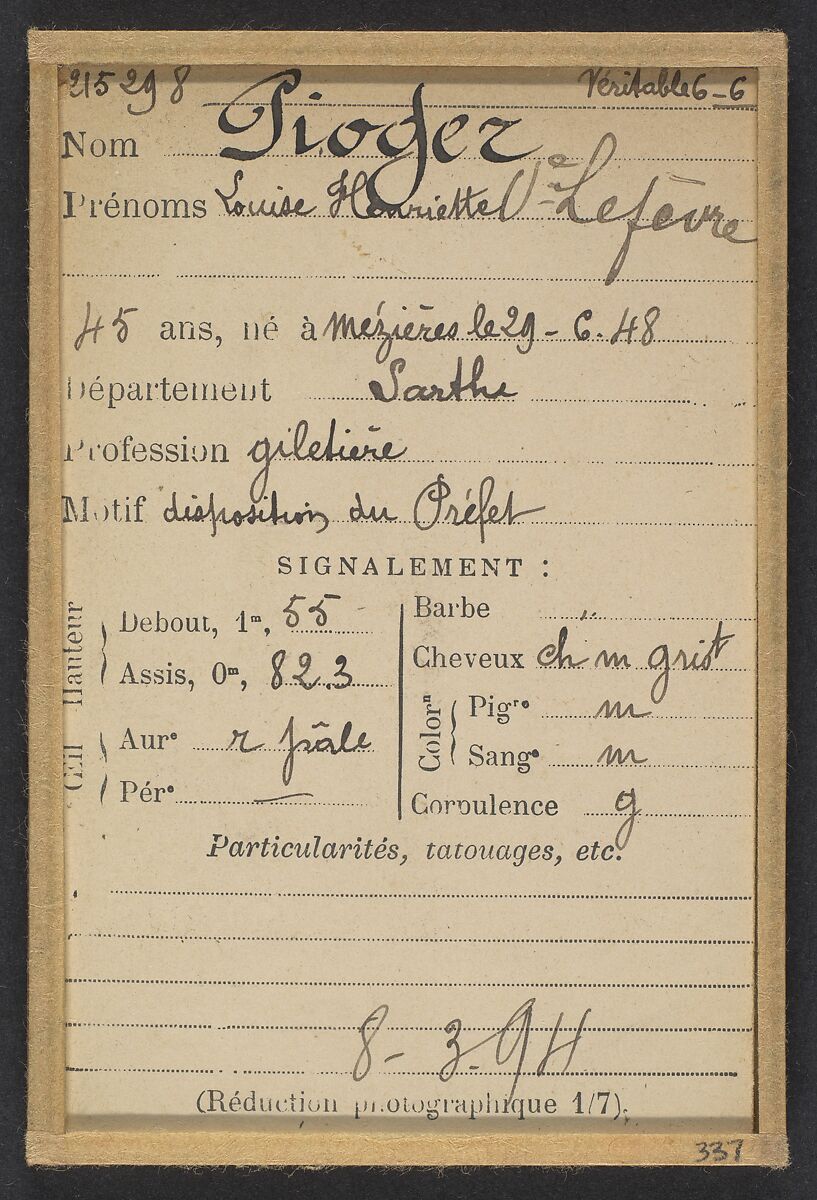 215298 Véritable 6-6
Nom Pioger
Prénoms Louise Henriette Vᵉ Lefèvre
45 ans, né à Mézières le 29-6-48
Département Sarthe
Profession giletière
Motif disposition du Préfet
SIGNALEMENT :
Hauteur
Debout, 1ᵐ, 55
Assis, 0ᵐ, 82.3
Œil
Aurᵉ r pâle
Périᵉ —
Barbe "
Cheveux ch m grist
Colorⁿ
Pigʳᵉ m
Sangᵉ m
Corpulence g
Particularités, tatouages, etc.
8-3.94
(Réduction photographique 1/7).
337